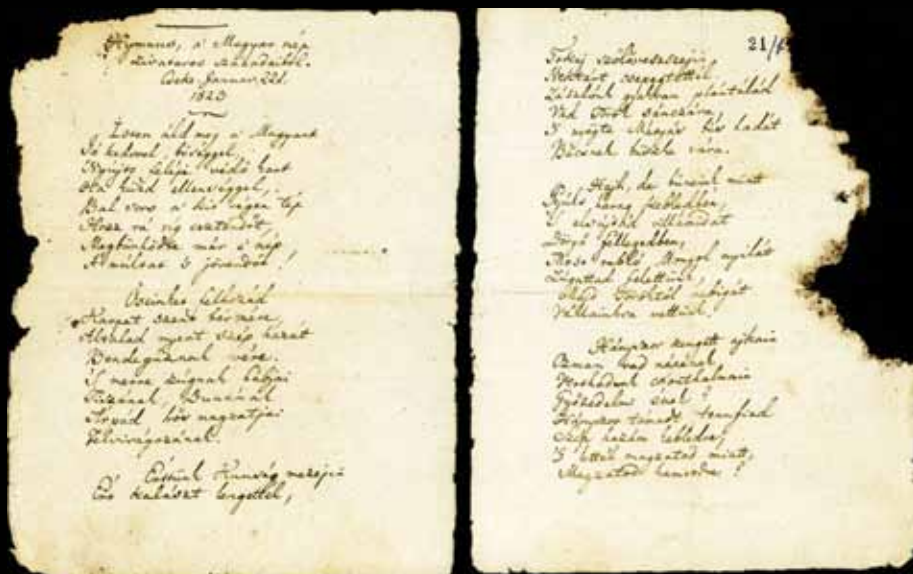 Hymnus, a' Magyar nép
zivataros századaiból.
Cseke, Januar. 22d.
1823
Isten áldd meg a' Magyart
Jó kedvvel, bőséggel,
Nyújts feléje védő kart
Ha küzd ellenséggel;
Bal sors a' kit régen tép
Hozz rá víg esztendőt,
Megbűnhödte már e' nép
A' múltat 's jövendőt!
Őseinket felhozád
Kárpát szent bérczére,
Általad nyert szép hazát
Bendegúznak vére.
'S merre zúgnak habjai
Tiszának, Dunának
Árpád hős magzatjai
Felvirágozának.
Értünk Kunság mezején
Ért kalászt lengettél,
21/
Tokaj szőlővesszein
Nektárt csepegtettél.
Zászlónk gyakran plántálád
Vad Török sánczára,
'S nyögte Mátyás bús hadát
Bécsnek büszke vára.
Hajh, de bűneink miatt
Gyúlt harag kebledben,
'S elsújtád villámidat
Dörgő fellegedben,
Most rabló Mongol nyilát
Zúgattad felettünk,
Majd Töröktől rabigát
Vállainkra vettünk.
Hányszor zengett ajkain
Ozman vad népének
csonthalmain
Győzedelmi ének!
Hányszor támadt tenfiad
Szép hazám kebledre,
'S lettél magzatod miatt,
Magzatod hamvedre!